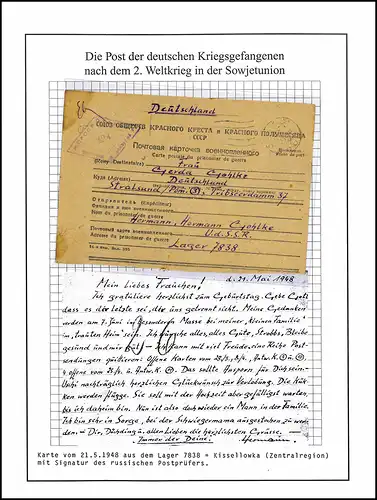 Die Post der deutschen Kriegsgefangenen
nach dem 2. Weltkrieg in der Sowjetunion
Deutschland
СОЮЗ ОБЩЕСТВ КРАСНОГО КРЕСТА и КРАСНОГО ПОЛУМЕСЯЦА
СССР
Почтовая карточка военнопленного
Carte postale du prisonnier de guerre
Кому (Destinataire) Frau
Gerda Gohlke
Куда (Adresse) Deutschland
Stralsund/Pom. Tribseerdamm 37
Отправитель (Expéditeur)
Фамилия и имя военнопленного
Nom du prisonnier de guerre
Hermann, Hermann Gohlke
Почтовый адрес военнопленного U.d.S.S.R.
Adresse du prisonnier de guerre
Lager 7838
d. 21. Mai 1948
Mein liebes Frauchen!
Ich gratuliere herzlichst zum Geburtstag. Gebe Gott
dass es der letzte sei, der uns getrennt sieht. Meine Gedanken
werden am 7. Juni in besonderem Masse bei meiner "kleinen Familie"
im "trauten Heim" sein. Ich wünsche alles, alles Gute, Bleibe
gesund und mir gut! Ich kann mit viel Freude eine Reihe Post-
sendungen quittieren: offene Karten vom
4 offene vom Das sollte Ansporn für Dich sein.
Uschi nachträglich herzlichen Glückwunsch zur Verlobung. Die Kü-
ken werden flügge. Sie soll mit der Hochzeit aber gefälligst warten,
bis ich daheim bin. Nun ist also doch wieder ein Mann in der Familie.
Ich bin sehr in Sorge, bei der Schwiegermama ausgestochen zu wer-
den. Dir, Dühding u. allen Lieben die herzlichsten Grüsse.
Immer der Deine. Hermann.
Karte vom 21.5.1948 aus dem Lager 7838 = Kissellowka (Zentralregion)
mit Signatur des russischen Postprüfers.